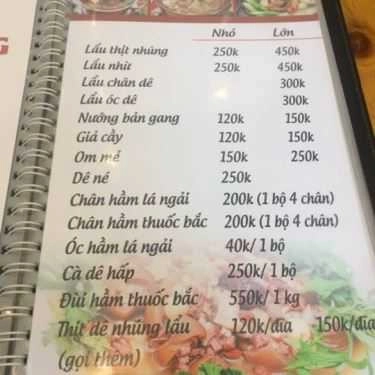 G
Nhỏ Lớn
Lẩu thịt nhúng 250k 450k
Lẩu nhừ 250k 450k
Lẩu chân dê 300k
Lẩu óc dê 300k
Nướng bản gang 120k 150k
Giả cầy 120k 150k
Om mẻ 150k 250k
Dê né 250k
Chân hầm lá ngải 200k (1 bộ 4 chân)
Chân hầm thuốc bắc 200k (1 bộ 4 chân)
Óc hầm lá ngải 40k/ 1 bộ
Cà dê hấp 250k/ 1 bộ
Đùi hầm thuốc bắc 550k/ 1 kg
Thịt dê nhúng lẩu 120k/đĩa 150k/đĩa
(gọi thêm)